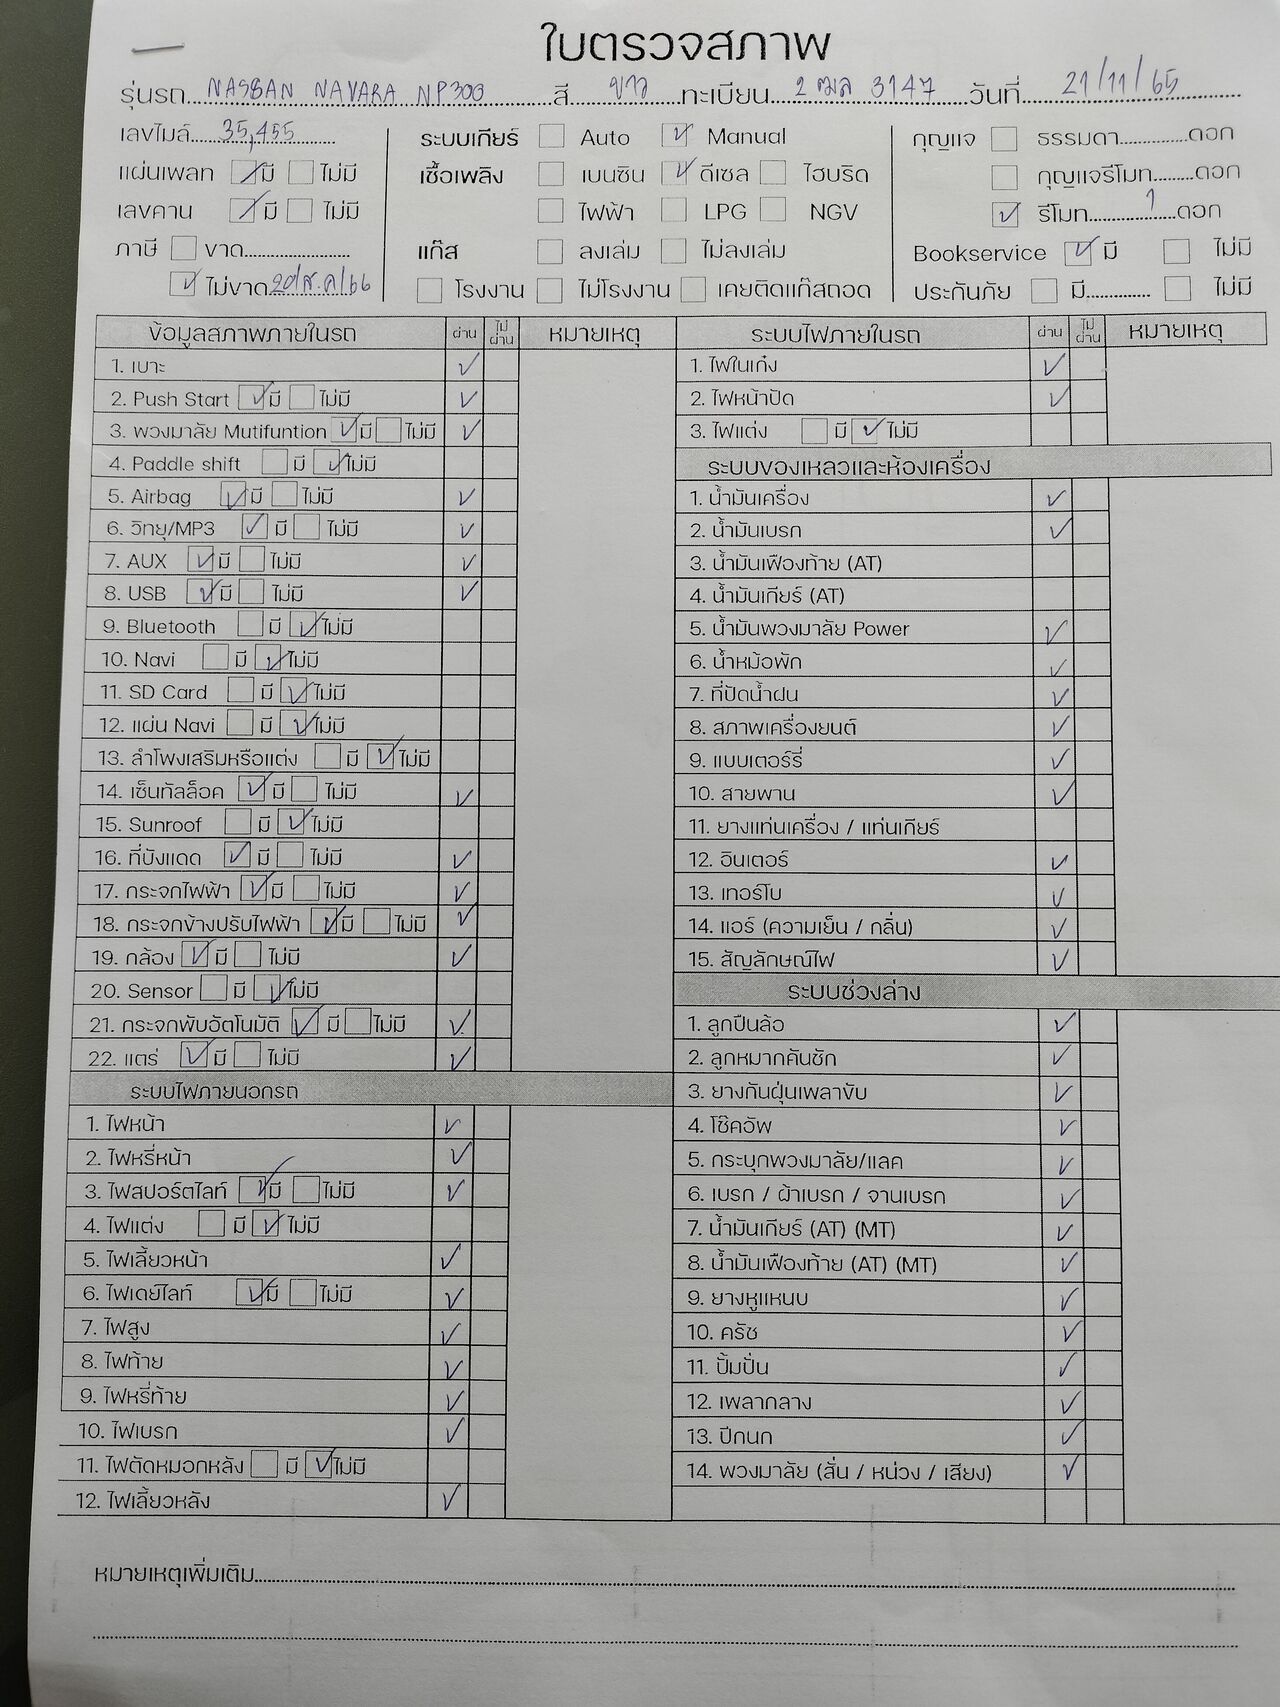 ใบตรวจสภาพ
รุ่นรถ NASSAN NAVARA NP300 สี ขาว ทะเบียน 2 ฒล 3147 วันที่ 21/11/65
เลขไมล์ 35,455
แผ่นเพลท มี ไม่มี
เลขคาน มี ไม่มี
ภาษี ขาด
ไม่ขาด 20/ส.ค/66
ระบบเกียร์ Auto Manual
เชื้อเพลิง เบนซิน ดีเซล ไฮบริด
ไฟฟ้า LPG NGV
แก๊ส ลงเล่ม ไม่ลงเล่ม
โรงงาน ไม่โรงงาน เคยติดแก๊สถอด
กุญแจ ธรรมดา ดอก
กุญแจรีโมท ดอก
รีโมท 1 ดอก
Bookservice มี ไม่มี
ประกันภัย มี ไม่มี
ข้อมูลสภาพภายในรถ ผ่าน ไม่ผ่าน หมายเหตุ
1. เบาะ
2. Push Start มี ไม่มี
3. พวงมาลัย Mutifuntion มี ไม่มี
4. Paddle shift มี ไม่มี
5. Airbag มี ไม่มี
6. วิทยุ/MP3 มี ไม่มี
7. AUX มี ไม่มี
8. USB มี ไม่มี
9. Bluetooth มี ไม่มี
10. Navi มี ไม่มี
11. SD Card มี ไม่มี
12. แผ่น Navi มี ไม่มี
13. ลำโพงเสริมหรือแต่ง มี ไม่มี
14. เซ็นทัลล็อค มี ไม่มี
15. Sunroof มี ไม่มี
16. ที่บังแดด มี ไม่มี
17. กระจกไฟฟ้า มี ไม่มี
18. กระจกข้างปรับไฟฟ้า มี ไม่มี
19. กล้อง มี ไม่มี
20. Sensor มี ไม่มี
21. กระจกพับอัตโนมัติ มี ไม่มี
22. แตร่ มี ไม่มี
ระบบไฟภายนอกรถ
1. ไฟหน้า
2. ไฟหรี่หน้า
3. ไฟสปอร์ตไลท์ มี ไม่มี
4. ไฟแต่ง มี ไม่มี
5. ไฟเลี้ยวหน้า
6. ไฟเดย์ไลท์ มี ไม่มี
7. ไฟสูง
8. ไฟท้าย
9. ไฟหรี่ท้าย
10. ไฟเบรก
11. ไฟตัดหมอกหลัง มี ไม่มี
12. ไฟเลี้ยวหลัง
ระบบไฟภายในรถ ผ่าน ไม่ผ่าน หมายเหตุ
1. ไฟในเก๋ง
2. ไฟหน้าปัด
3. ไฟแต่ง มี ไม่มี
ระบบของเหลวและห้องเครื่อง
1. น้ำมันเครื่อง
2. น้ำมันเบรก
3. น้ำมันเฟืองท้าย (AT)
4. น้ำมันเกียร์ (AT)
5. น้ำมันพวงมาลัย Power
6. น้ำหม้อพัก
7. ที่ปัดน้ำฝน
8. สภาพเครื่องยนต์
9. แบบเตอร์รี่
10. สายพาน
11. ยางแท่นเครื่อง / แท่นเกียร์
12. อินเตอร์
13. เทอร์โบ
14. แอร์ (ความเย็น / กลิ่น)
15. สัญลักษณ์ไฟ
ระบบช่วงล่าง
1. ลูกปืนล้อ
2. ลูกหมากคันชัก
3. ยางกันฝุ่นเพลาขับ
4. โช๊คอัพ
5. กระบุกพวงมาลัย/แลค
6. เบรก / ผ้าเบรก / จานเบรก
7. น้ำมันเกียร์ (AT) (MT)
8. น้ำมันเฟืองท้าย (AT) (MT)
9. ยางหูแหนบ
10. ครัช
11. ปั้มปั่น
12. เพลากลาง
13. ปีกนก
14. พวงมาลัย (สั่น / หน่วง / เสียง)
หมายเหตุเพิ่มเติม